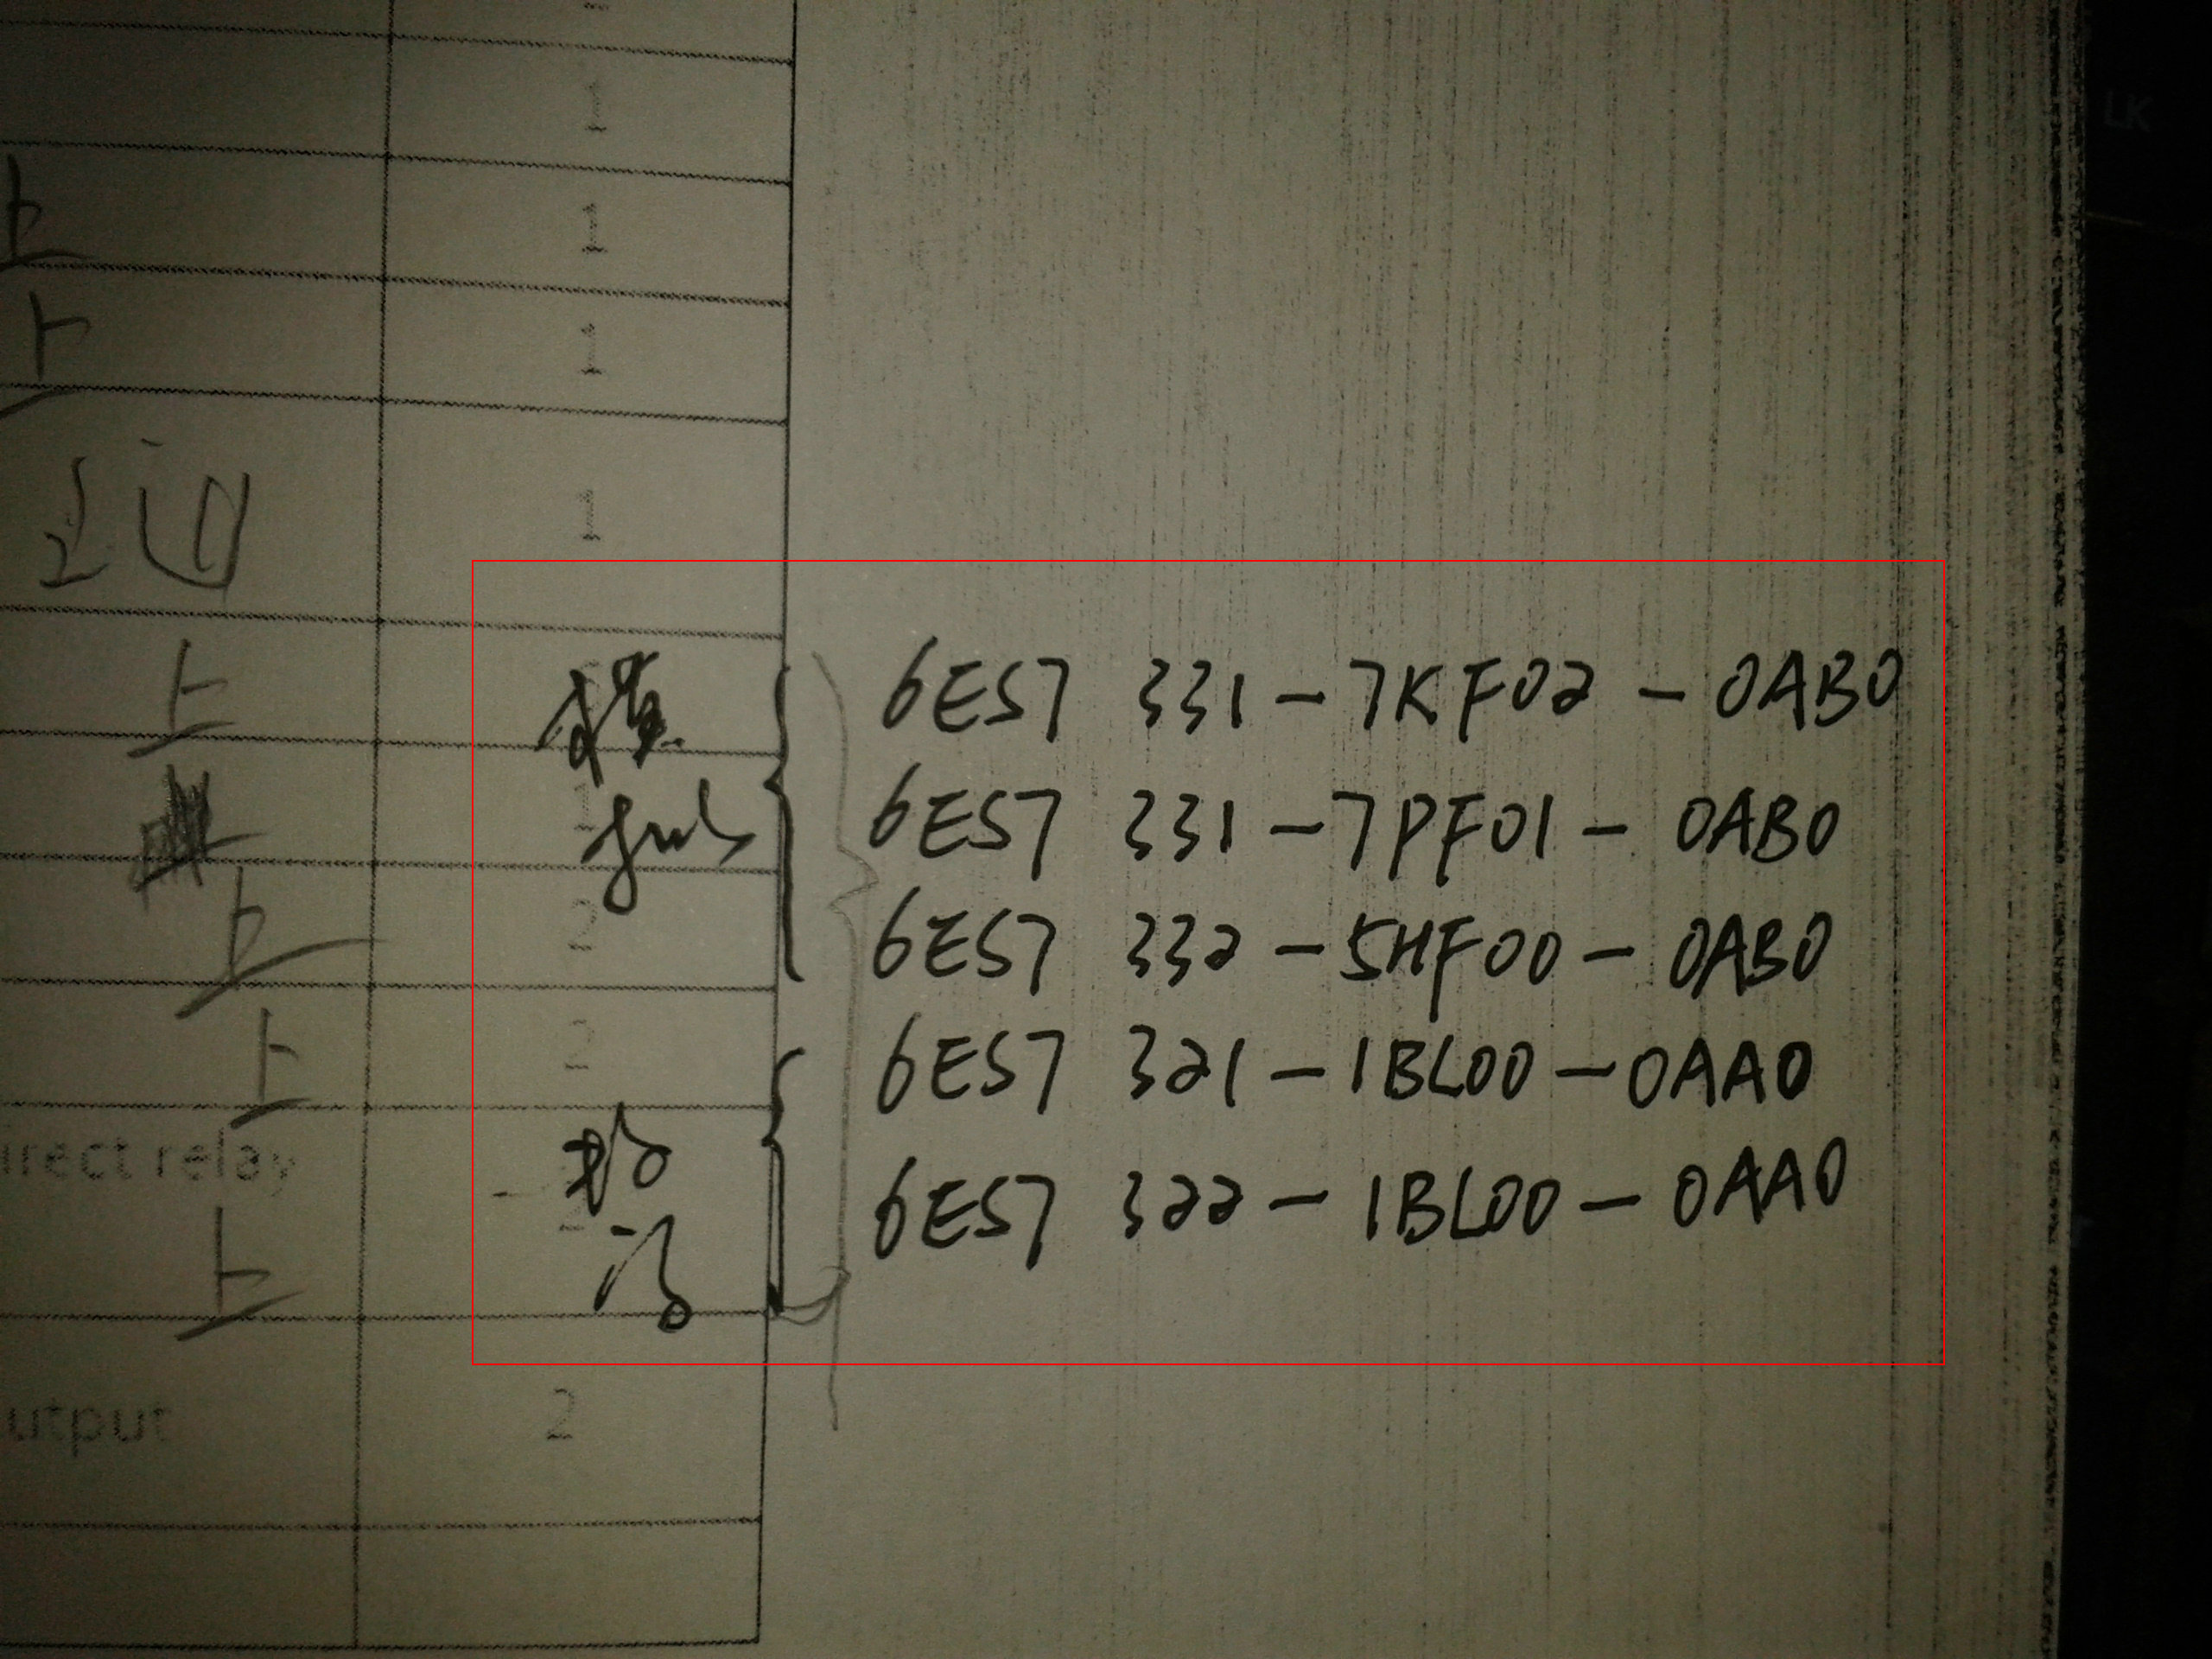 1
上
1
上
1
1
上
模
6ES7 331-7KF02-0AB0
6ES7 331-7PF01-0AB0
上
2
6ES7 332-5HF00-0AB0
上
2
6ES7 321-1BL00-0AA0
irect relay
6ES7 322-1BL00-0AA0
上
utput
2